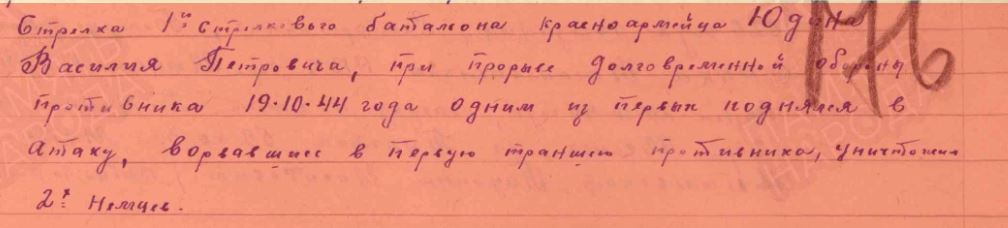 Стрелка 1го Стрелкового баталиона красноармейца Юдина
Василия Петровича, при прорыве долговременной обороны
противника 19.10.44 года одним из первых поднялся в
атаку, ворвавшись в первую траншею противника, уничтожил
2х немцев.